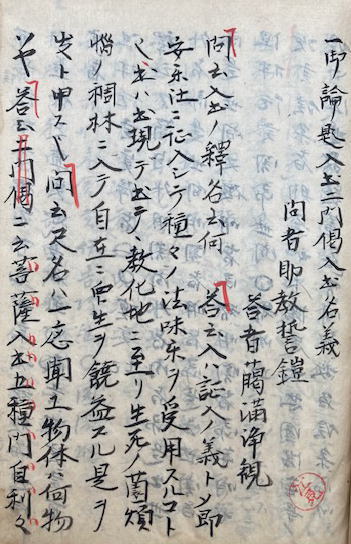 一御論題入出二門偈入出名義
問者即教誓鎧
答者藹満浄観
問云入出ノ釋名云何 答云入ハ証入ノ義トメ即
安乐仕ニ証入シテ種々ノ法味乐ヲ受用スルコト
出ハ出現テ出テ教化地ニ至リ生死ノ薗煩
惱ノ稠林ニ入テ自在ニ衆生ヲ饒益スル是ヲ
出ト申ス 問云尺名ハ一応聞エ物体ハ何物
ソヤ 答云二門偈ニ云菩薩入出五種門自利々